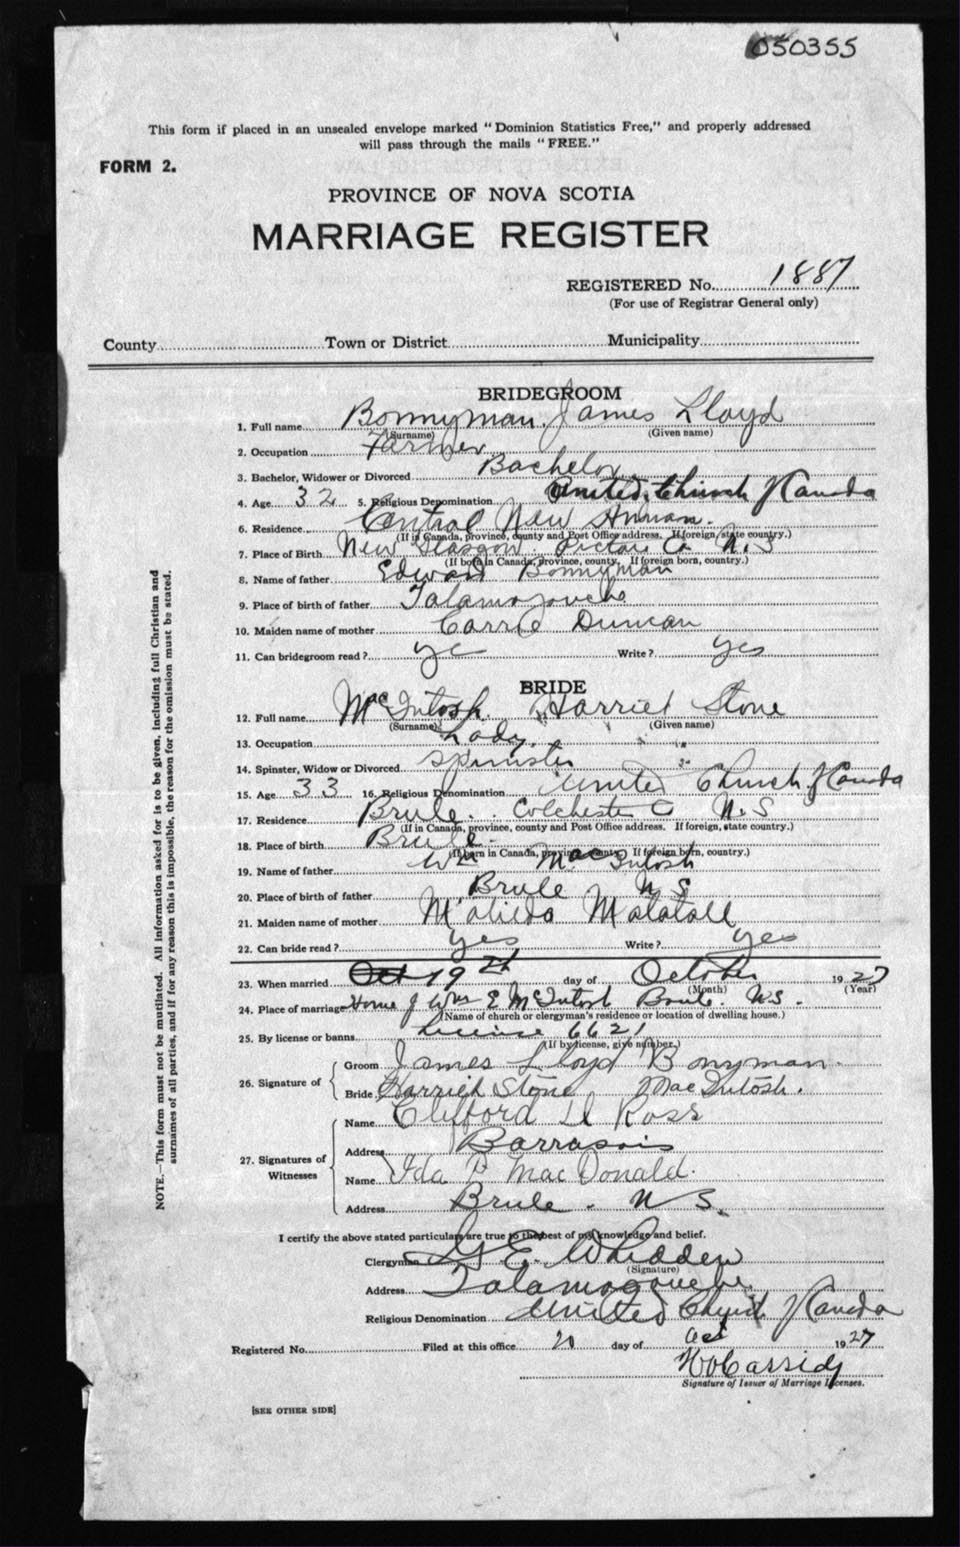 050355
This form if placed in an unsealed envelope marked "Dominion Statistics Free," and properly addressed
will pass through the mails "FREE."
FORM 2.
PROVINCE OF NOVA SCOTIA
MARRIAGE REGISTER
REGISTERED No. 1887
(For use of Registrar General only)
County Town or District Municipality
BRIDEGROOM
1. Full name Bonnyman James Lloyd
(Surname) (Given name)
2. Occupation Farmer
3. Bachelor, Widower or Divorced Bachelor
4. Age 32 5. Religious Denomination United Church of Canada
6. Residence Central New Annan.
(If in Canada, province, county and Post Office address. If foreign, state country.)
7. Place of Birth New Glasgow Pictou Co N.S
(If born in Canada, province, county. If foreign born, country.)
8. Name of father Edward Bonnyman
9. Place of birth of father Tatamagouche
10. Maiden name of mother Carrie Duncan
11. Can bridegroom read? yes Write? yes
BRIDE
12. Full name MacIntosh Harriet Stone
(Surname) (Given name)
13. Occupation Lady
14. Spinster, Widow or Divorced spinster
15. Age 33 16. Religious Denomination United Church of Canada
17. Residence Brule. Colchester Co N.S
(If in Canada, province, county and Post Office address. If foreign, state country.)
18. Place of birth Brule.
(If born in Canada, province, county. If foreign born, country.)
19. Name of father Wm MacIntosh
20. Place of birth of father Brule N S
21. Maiden name of mother Malatall
22. Can bride read? yes Write? yes
23. When married Oct 19th day of October 1927
(Month) (Year)
24. Place of marriage Home of Wm E McIntosh Brule. N.S.
(Name of church or clergyman's residence or location of dwelling house.)
25. By license or banns License 6621
(If by license, give number.)
26. Signature of
Groom James Lloyd Bonyman
Bride Harriet Stone MacIntosh.
27. Signatures of Witnesses
Name Clifford D Ross
Address Barrasois
Name Ida P MacDonald.
Address Brule. N S.
I certify the above stated particulars are true to the best of my knowledge and belief.
Clergyman G. E. Whidden
(Signature)
Address Tatamagouche
Religious Denomination United Church of Canada
Registered No. Filed at this office 20 day of Oct 1927
Cassidy
Signature of Issuer of Marriage Licenses.
[SEE OTHER SIDE]
NOTE.—This form must not be mutilated. All information asked for is to be given, including full Christian and
surnames of all parties, and if for any reason this is impossible, the reason for the omission must be stated.